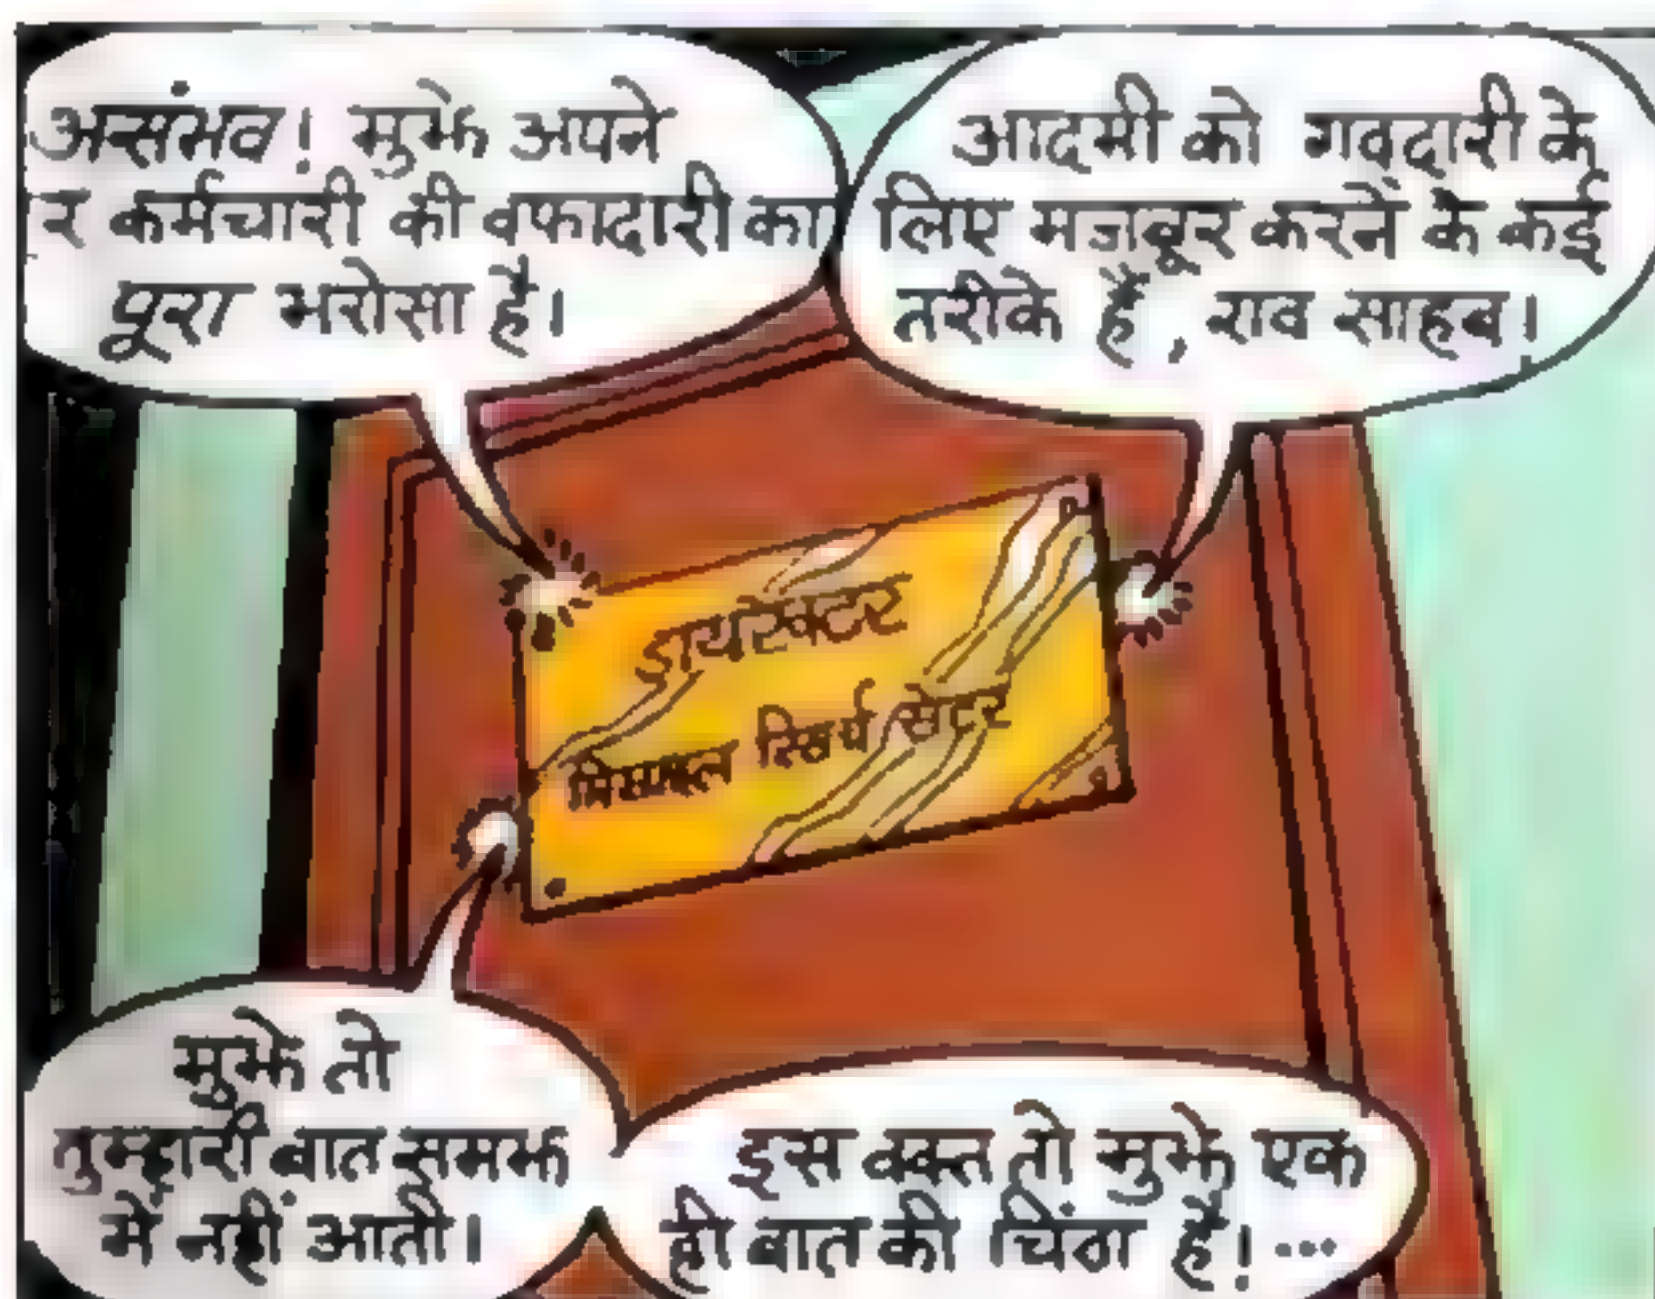 असंभव! मुझे अपने
र कर्मचारी की वफादारी का
पूरा भरोसा है।
आदमी को गद्दारी के
लिए मजबूर करनें के कई
तरीके हैं, राव साहब।
डायरेक्टर
मिसाइल रिसर्च सेंटर
मुझे तो
तुम्हारी बात समझ
में नहीं आती।
इस वक्त तो मुझे एक
ही बात की चिंता है!...